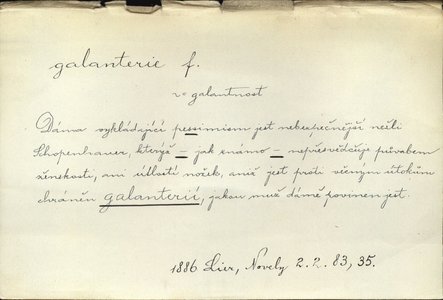 galanterie f.
= galantnost
Dáma vykládající pessimism jest nebezpečnější nežli
Schopenhauer, kterýž – jak známo – nepřesvědčuje půvabem
ženskosti, ani útlostí nožek, aniž jest proti věcným útokům
chráněn galanterií, jakou muž dámě povinen jest.
1886 Lier, Novely 2.2. 83, 35.